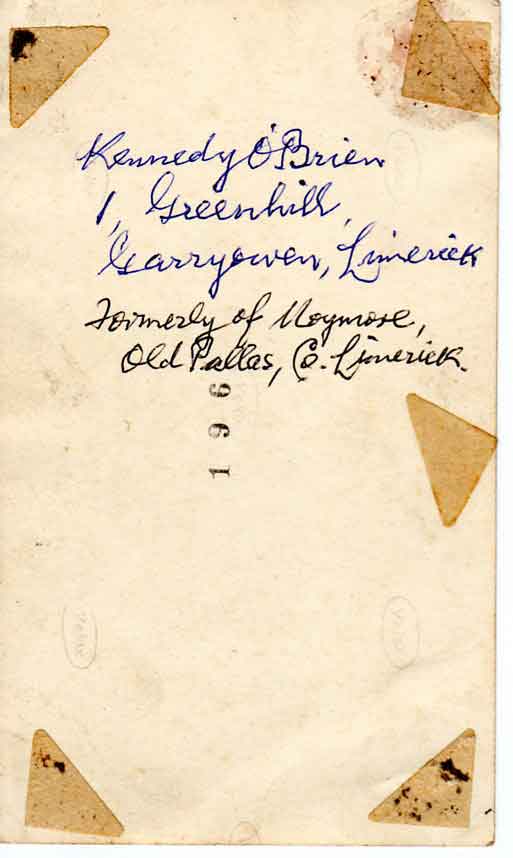 Kennedy O'Brien
1, Greenhill,
Garryowen, Limerick
Formerly of Moymore,
Old Pallas, Co. Limerick.
196